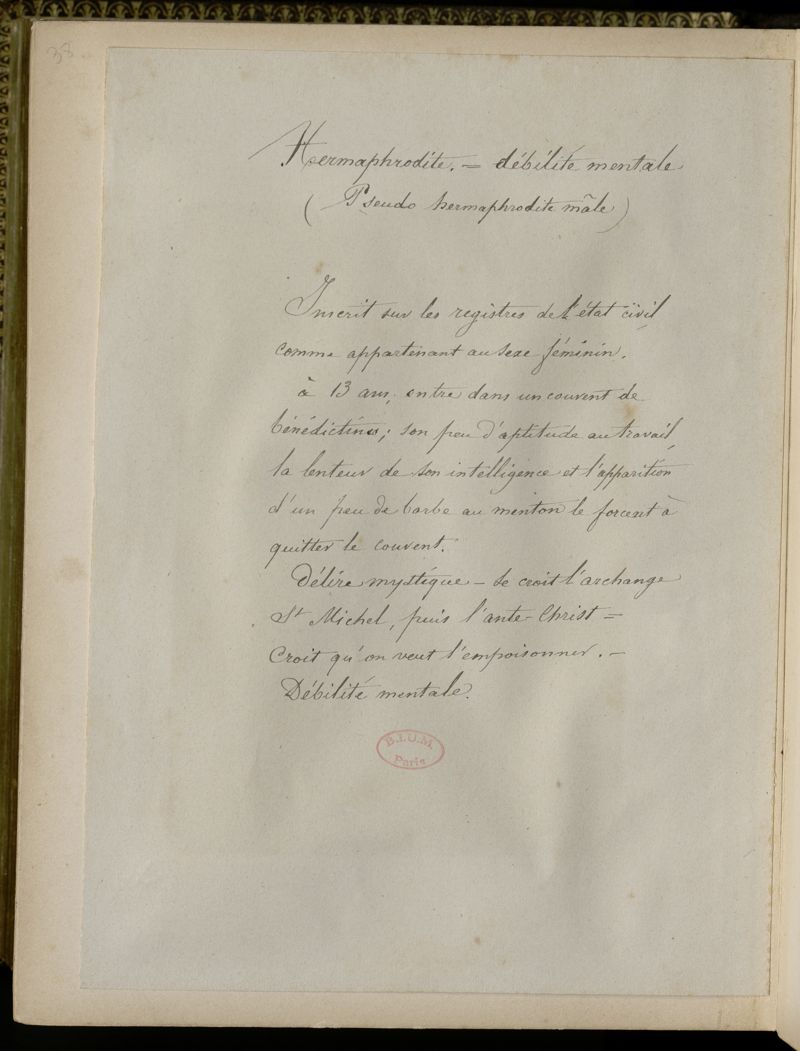 38
Hermaphrodite. = débilité mentale
( Pseudo hermaphrodite mâle )
Inscrit sur les registres de l'état civil
comme appartenant au sexe féminin.
à 13 ans, entre dans un couvent de
bénédictins ; son peu d'aptitude au travail,
la lenteur de son intelligence et l'apparition
d'un peu de barbe au menton le forcent à
quitter le couvent.
Délire mystique _ Se croit l'archange
St Michel, puis l'ante-Christ =
Croit qu'on veut l'empoisonner. _
Débilité mentale.
B.I.U.M.
Paris